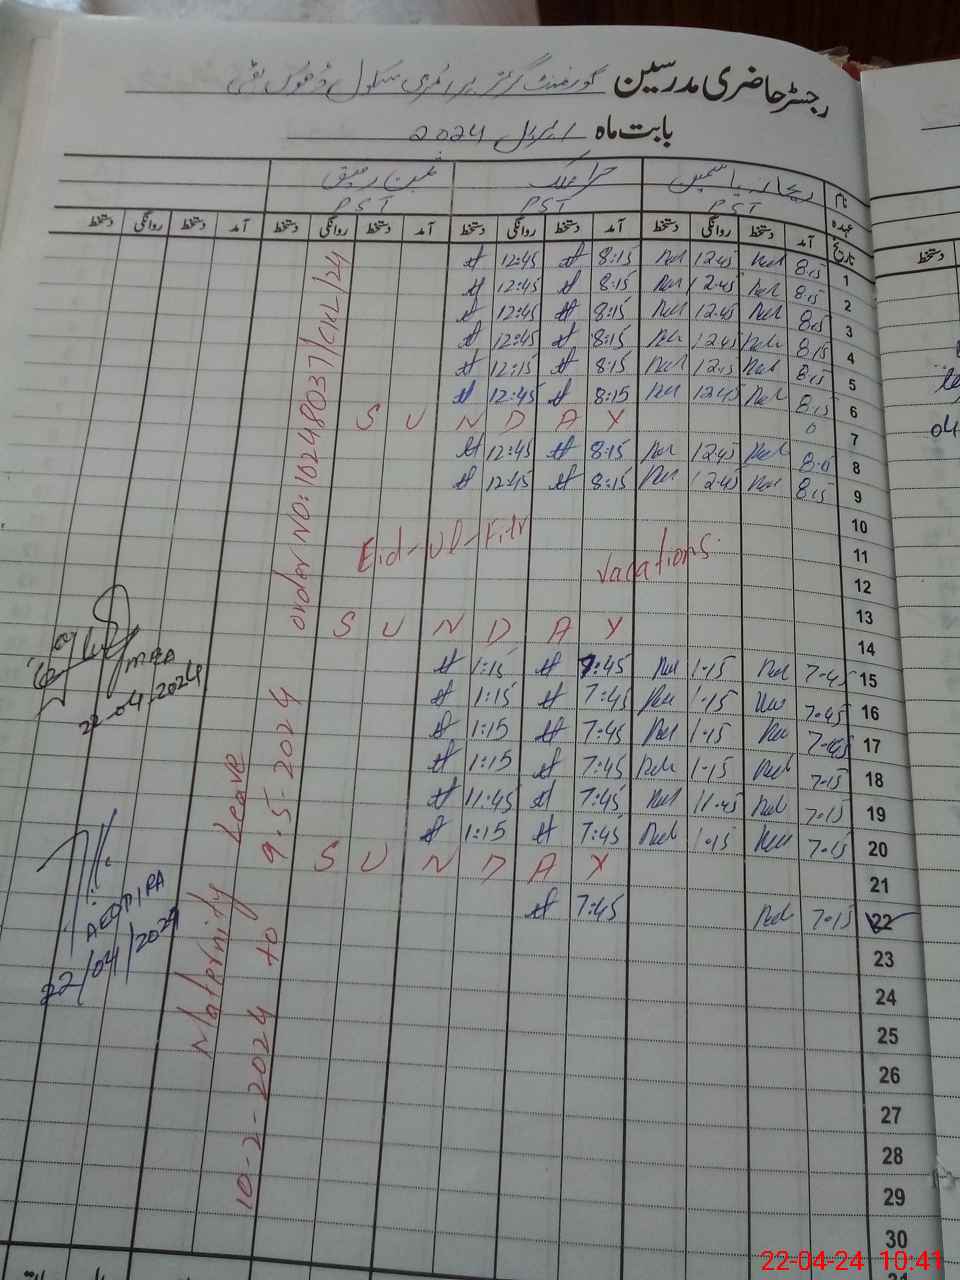 رجسٹر حاضری مدرسین گورنمنٹ گرلز پرائمری سکول
بابت ماہ اپریل 2024
نام ریحانہ یاسمین حرا ملک
عہدہ PST PST PST
تاریخ آمد دستخط روانگی دستخط آمد دستخط روانگی دستخط آمد دستخط روانگی دستخط آمد دستخط روانگی دستخط
1 8:15 12:45 8:15 12:45
2 8:15 12:45 8:15 12:45
3 8:15 12:45 8:15 12:45
4 8:15 12:45 8:15 12:45
5 8:15 12:15 8:15 12:15
6 8:15 12:45 8:15 12:45
7 SUNDAY
8 12:45 8:15 12:45
9 8:15 12:45 8:15 12:45
10
11 Eid-ul-Fitr vacations
12
13
14 SUNDAY
15 7:45 1:15 7:45 1:15
16 7:45 1:15 7:45 1:15
17 7:45 1:15 7:45 1:15
18 7:15 1:15 7:45 1:15
19 7:15 11:45 7:45 11:45
20 7:15 1:15 7:45 1:15
21 SUNDAY
22 7:15 7:45
23
24
25
26
27
28
29
30
order NO: 10248037/CKL/24
Maternity Leave
10-2-2024 to 9-5-2024
MEA
22-04-2024
22/04/2024
دستخط
04
22-04-24 10:41